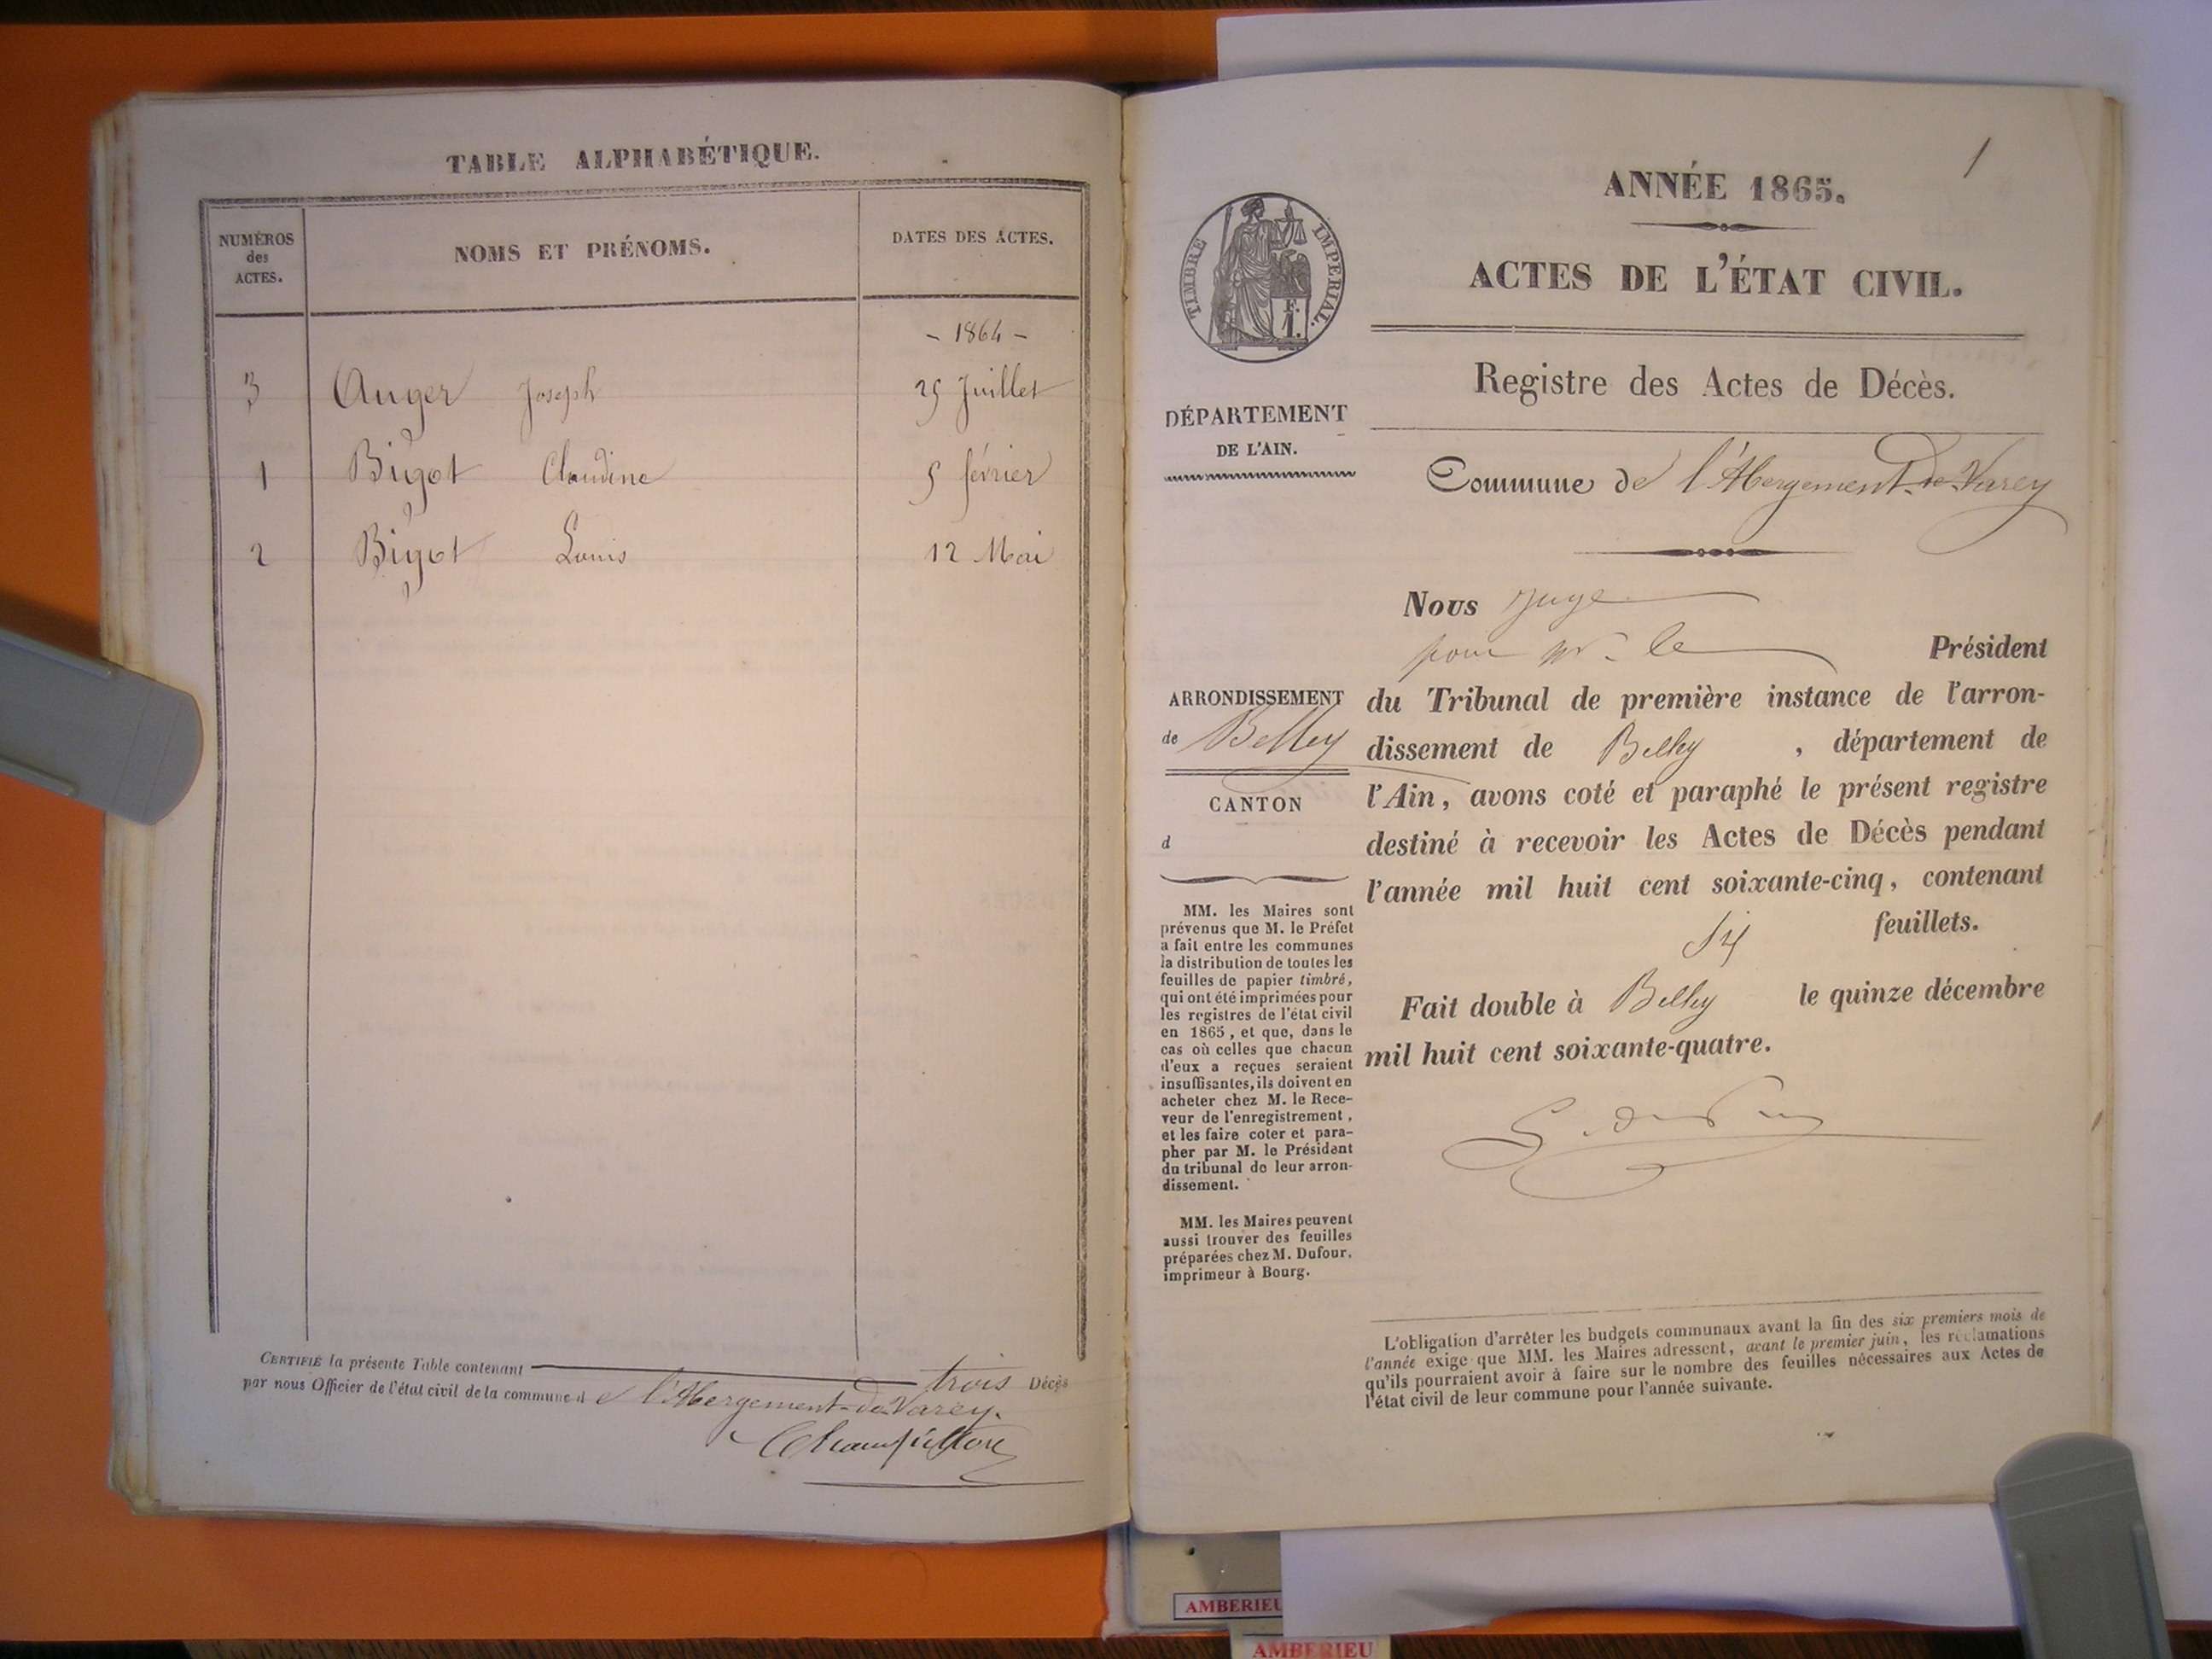 TABLE ALPHABÉTIQUE.
NUMÉROS
des
ACTES.
NOMS ET PRÉNOMS.
DATES DES ACTES.
- 1864 -
3 Auger Joseph 25 Juillet
1 Bigot Claudine 5 février
2 Bigot Louis 12 Mai
CERTIFIÉ la présente Table contenant trois Décès
par nous Officier de l'état civil de la commune d e l'Abergement-de-Varey.
1
ANNÉE 1865.
ACTES DE L'ÉTAT CIVIL.
TIMBRE IMPERIAL.
F.
1.
Registre des Actes de Décès.
DÉPARTEMENT
DE L'AIN.
Commune de l'Abergement-de-Varey
Nous Juge
pour Mr le Président
ARRONDISSEMENT
de Belley
CANTON
d
du Tribunal de première instance de l'arron-
dissement de Belley , département de
l'Ain, avons coté et paraphé le présent registre
destiné à recevoir les Actes de Décès pendant
l'année mil huit cent soixante-cinq, contenant
six feuillets.
Fait double à Belley le quinze décembre
mil huit cent soixante-quatre.
MM. les Maires sont
prévenus que M. le Préfet
a fait entre les communes
la distribution de toutes les
feuilles de papier timbré,
qui ont été imprimées pour
les registres de l'état civil
en 1865, et que, dans le
cas où celles que chacun
d'eux a reçues seraient
insuffisantes, ils doivent en
acheter chez M. le Rece-
veur de l'enregistrement,
et les faire coter et para-
pher par M. le Président
du tribunal de leur arron-
dissement.
MM. les Maires peuvent
aussi trouver des feuilles
préparées chez M. Dufour,
imprimeur à Bourg.
L'obligation d'arrêter les budgets communaux avant la fin des six premiers mois de
l'année exige que MM. les Maires adressent, avant le premier juin, les réclamations
qu'ils pourraient avoir à faire sur le nombre des feuilles nécessaires aux Actes de
l'état civil de leur commune pour l'année suivante.
AMBERIEU
AMBERIEU